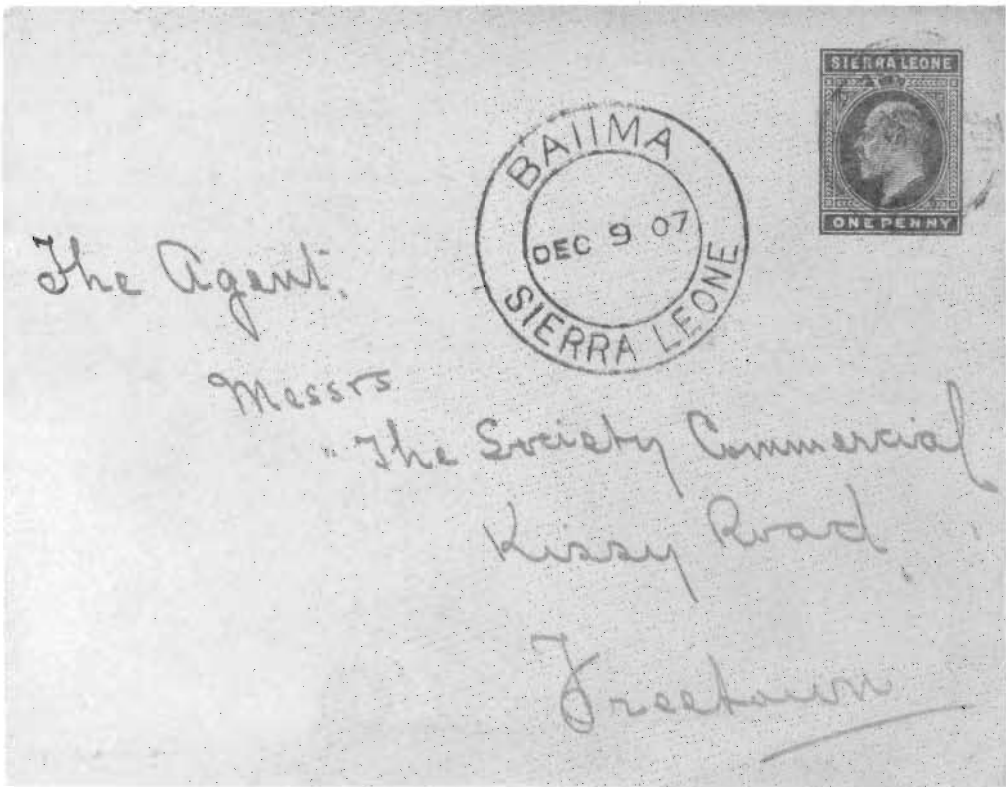 SIERRA LEONE
ONE PENNY
BAIIMA
DEC 9 07
SIERRA LEONE
The Agent.
Messrs
"The Society Commercial
Kissy Road
Freetown